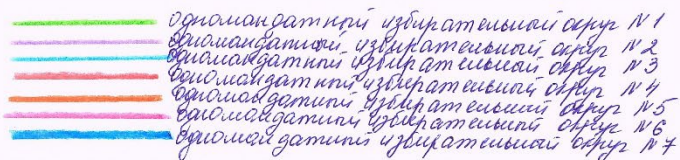 Одномандатный избирательный округ №1
Одномандатный избирательный округ №2
Одномандатный избирательный округ №3
Одномандатный избирательный округ №4
Одномандатный избирательный округ №5
Одномандатный избирательный округ №6
Одномандатный избирательный округ №7